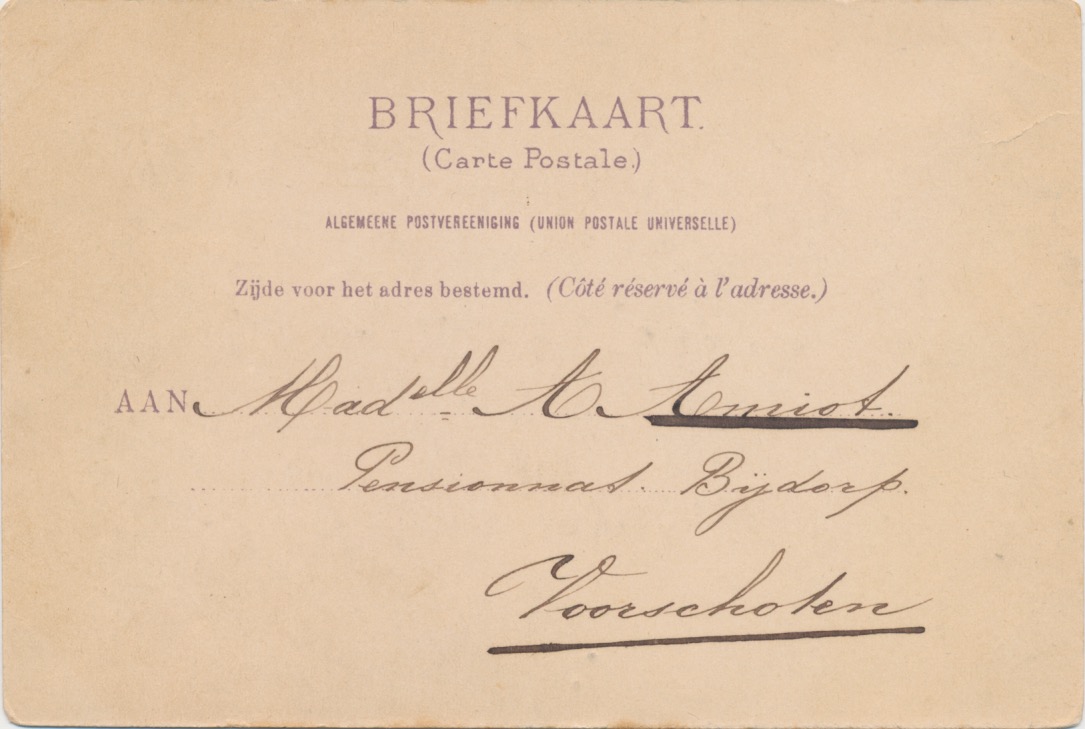 BRIEFKAART.
(Carte Postale.)
ALGEMEENE POSTVEREENIGING (UNION POSTALE UNIVERSELLE)
Zijde voor het adres bestemd. (Côté réservé à l'adresse.)
AAN Madelle A Amiot.
Pensionnat. Bijdorp.
Voorschoten